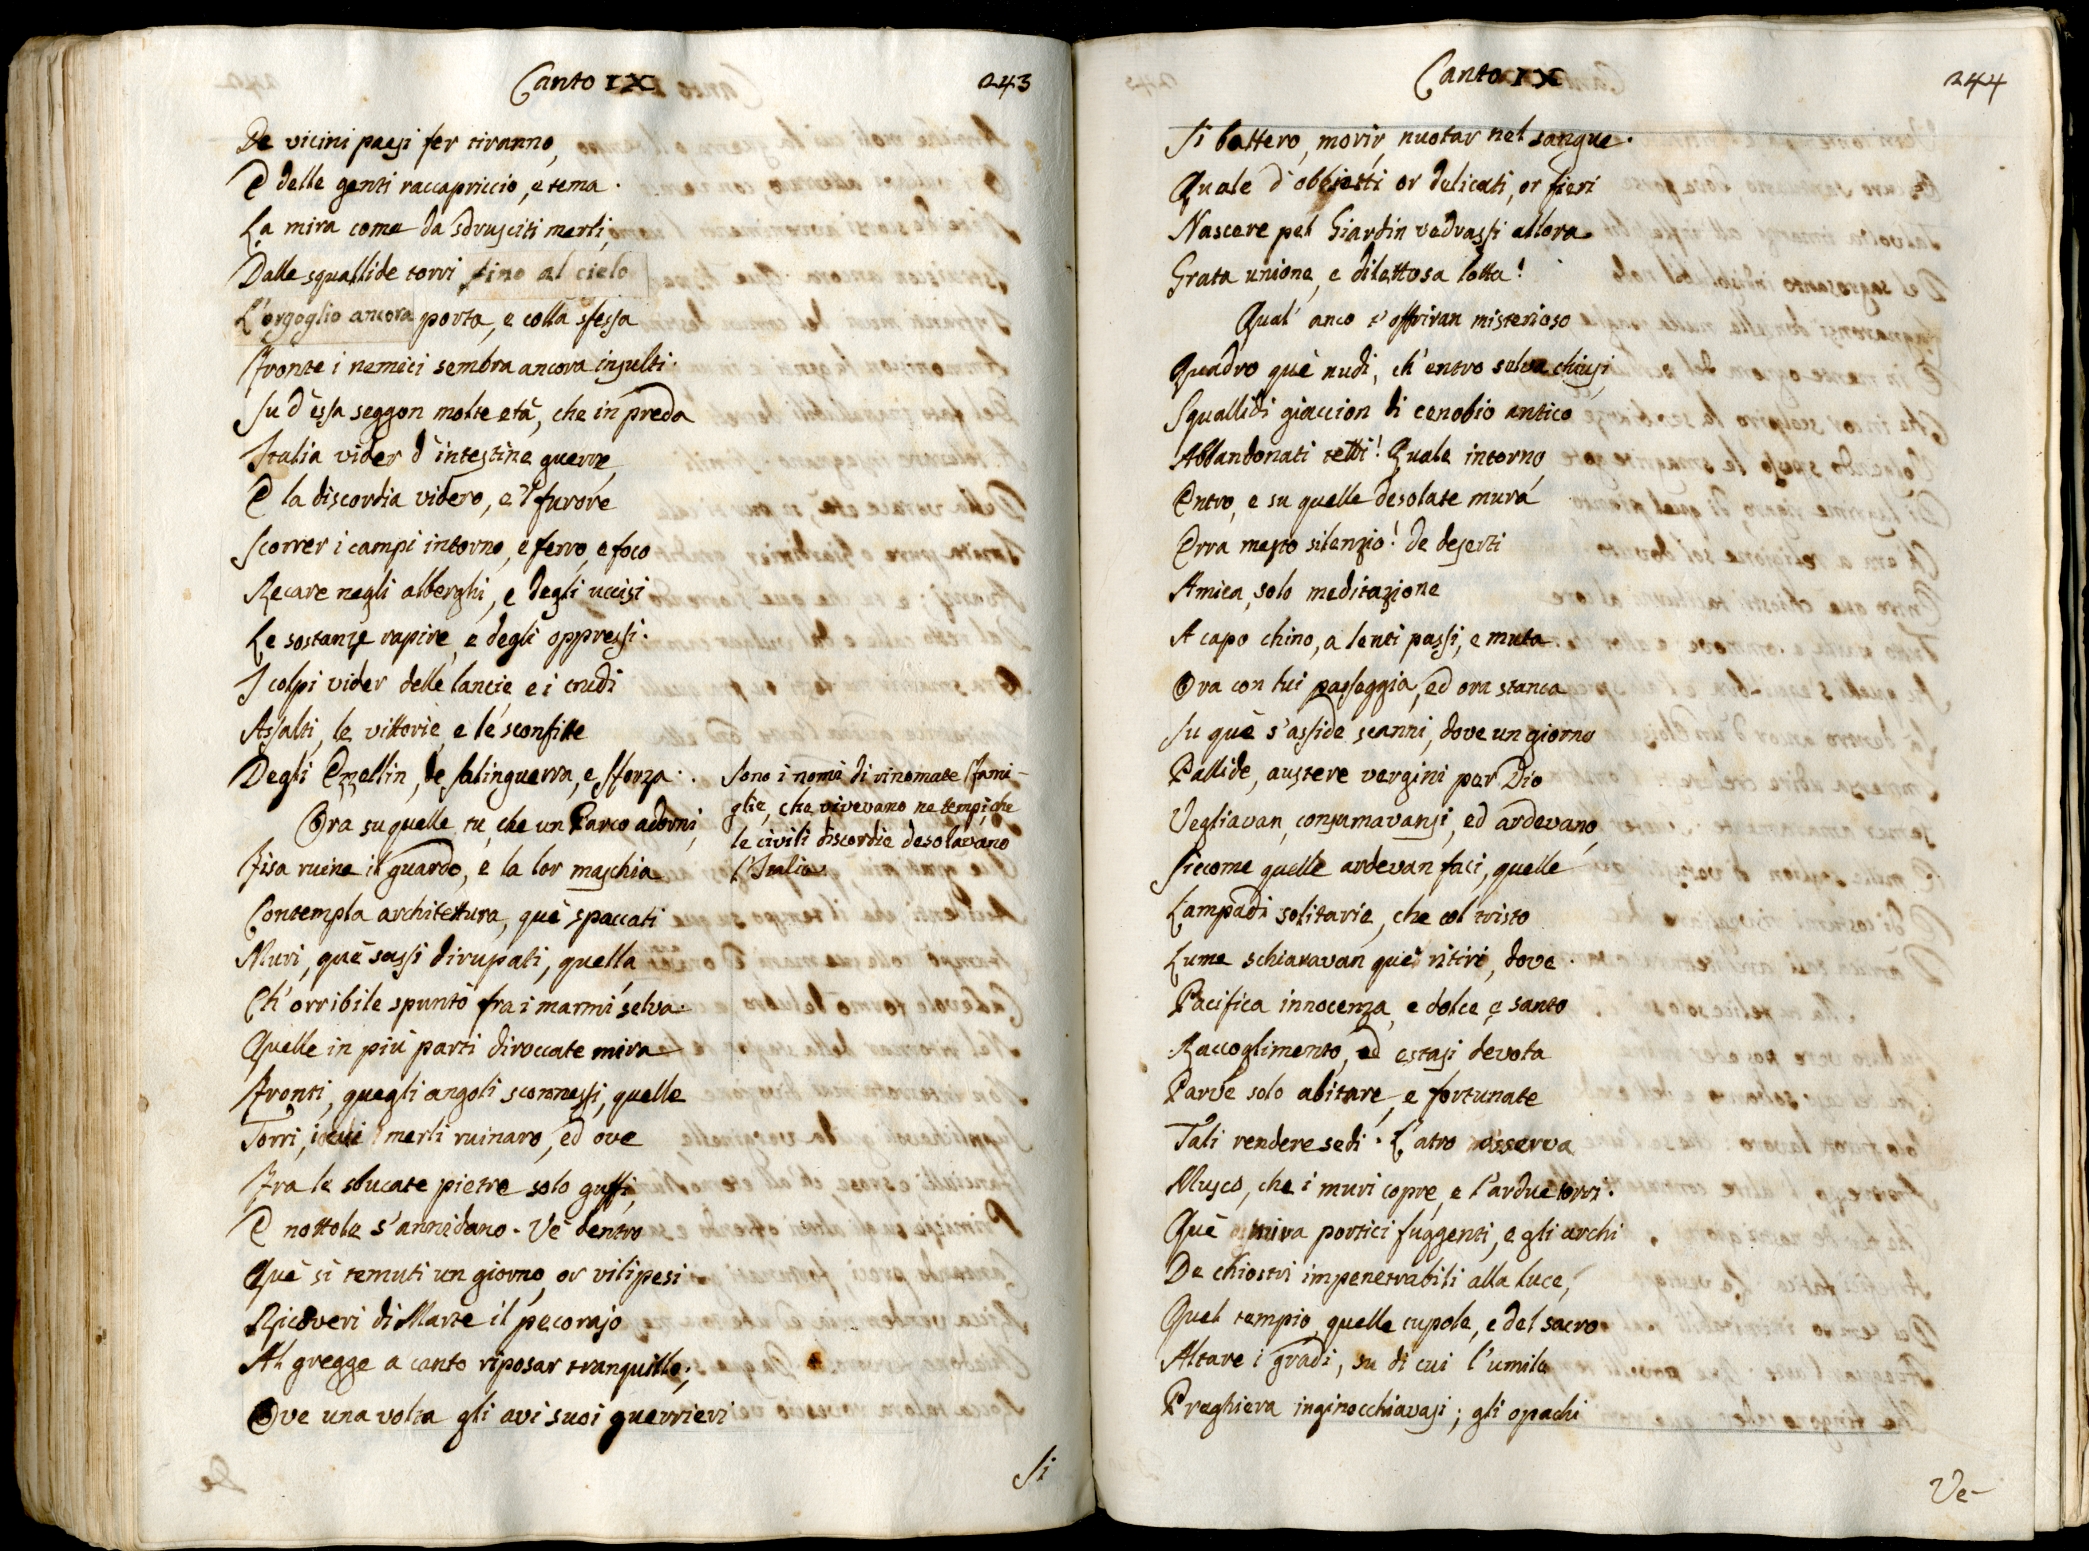 Canto IX
243
De vicini paesi fer tiranno,
E delle genti raccapriccio, e tema.
La mira come da sdrusciti merli,
Dalle squallide torri fino al cielo
L'orgoglio ancora porta, e colla stessa
Fronte i nemici sembra ancora insulti.
Su d'essa seggon molte età, che in preda
Italia vider d'intestine guerre,
E la discordia videro, e 'l furore
Scorrer i campi intorno, e ferro, e foco
Recare negli alberghi, e degli uccisi
Le sostanze rapire, e degli oppressi.
I colpi vider delle lancie, e i crudi
Assalti, le vittorie, e le sconfitte
Degli Ezzellin, de Salinguerra, e Sforza.
Ora su quelle tu, che un Parco adorni,
Fisa ruine il guardo, e la lor maschia
Contempla architettura, què spaccati
Muri, què sassi dirupati, quella,
Ch' orribile spuntò fra i marmi, selva.
Quelle in più parti diroccate mira
Fronti, quegli angoli sconnessi, quelle
Torri, i merli ruinaro, ed ove
Fra le sbucate pietre solo guffi,
E nottole s'annidano. Vè dentro
Què sì temuti un giorno, or vilipesi
Ricoveri di Marte il pecorajo
Al gregge a canto riposar tranquillo;
Ove una volta gli avi suoi guerrieri
Sono i nomi di rinomate Fami-
glie, che vivevano ne tempi, che
le civili discordie desolavano
l'Italia.
Si
Canto IX
244
Si battero, morir, nuotar nel sangue.
Quale d'obbietti or delicati, or fieri
Nascere pel Giardin vedrassi allora
Grata unione, e dilettosa lotta!
Qual' anco t'offriran misterioso
Quadro què nudi, ch' entro selva chiusi,
Squallidi giaccion di cenobio antico
Abbandonati tetti! Quale intorno,
Entro, e su quelle desolate mura
Erra mesto silenzio! De deserti
Amica, solo meditazione
A capo chino, a lenti passi, e muta
Ora con lui passeggia, ed ora stanca
Su què s'asside scanni, dove un giorno
Pallide, austere vergini per Dio
Vegliavan, consumavansi, ed ardevano,
Siccome quelle ardevan faci, quelle
Lampadi solitarie, che col tristo
Lume schiaravan què ritiri, dove
Pacifica innocenza, e dolce e santo
Raccoglimento, ed estasi devota
Parve solo abitare, e fortunate
Tali rendere sedi. L'atro osserva
Musco, che i muri copre, e l'ardue torri.
Què mira portici fuggenti, e gli archi
De chiostri impenetrabili alla luce,
Quel tempio, quelle cupole, e del sacro
Altare i gradi, su di cui l'umile
Preghiera inginocchiavasi; gli opachi
Ve-